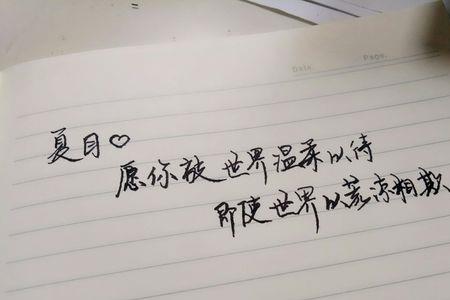 Date.
Page.
夏目♡
愿你被世界温柔以待
即使世界以荒凉相欺